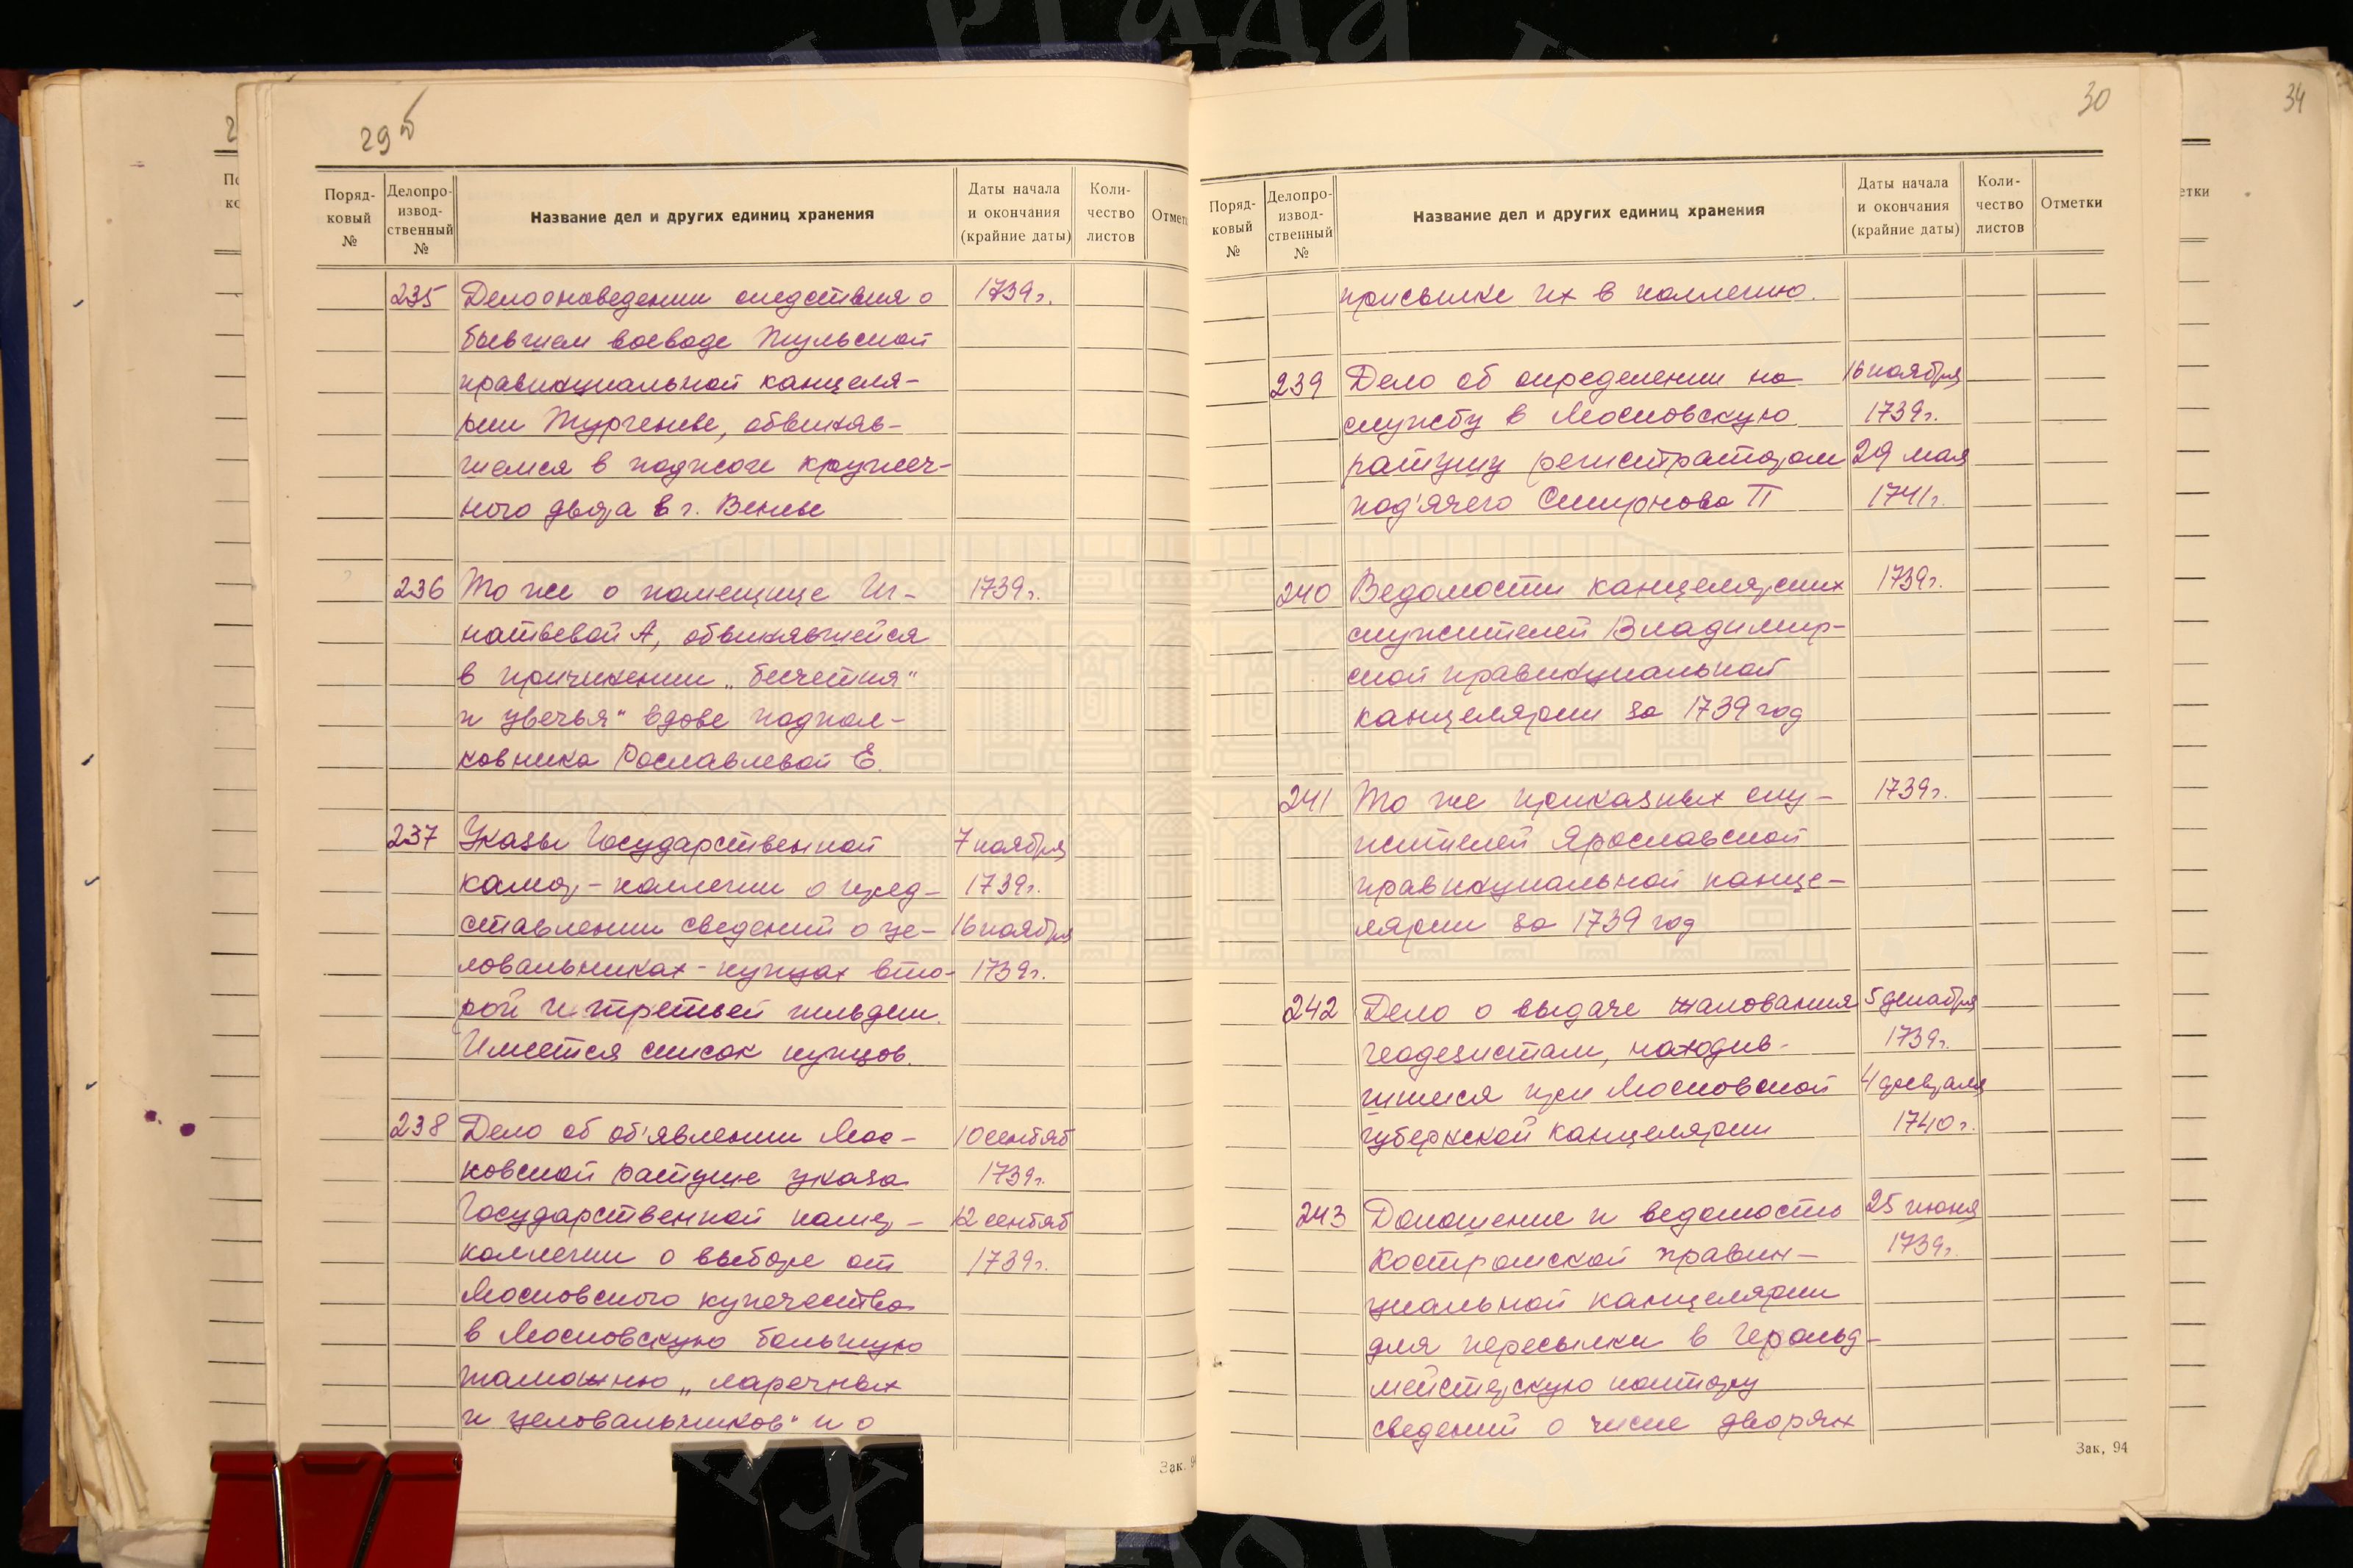 29б
Поряд-
ковый
№
Делопро-
извод-
ственный
№
Название дел и других единиц хранения
Даты начала
и окончания
(крайние даты)
Коли-
чество
листов
Отмет
235 Дело о наведении следствия о 1739г.
бывшем воеводе Тульской
провинциальной канцеля-
рии Тургеневе, обвиняв-
шемся в поджоге кружеч-
ного двора в г. Веневе
236 То же о помещице Иг- 1739г.
натьевой А, обвинявшейся
в причинении „бесчестия"
и увечья" вдове подпол-
ковника Рославлевой Е.
237 Указы Государственной 7 ноября
камер-коллегии о пред- 1739г.
ставлении сведений о це- 16 ноября
ловальниках-купцах вто- 1739г.
рой и третьей гильдии.
Имеется список купцов.
238 Дело об об'явлении Мос- 10 сентяб
ковской ратуше указа 1739г.
Государственной камер- 12 сентяб
коллегии о выборе от 1739г.
Московского купечества
в Московскую большую
таможню „ларечных
и целовальников" и о
Зак. 9
30
Поряд-
ковый
№
Делопро-
извод-
ственный
№
Название дел и других единиц хранения
Даты начала
и окончания
(крайние даты)
Коли-
чество
листов
Отметки
присылке их в коллегию.
239 Дело об определении на 16 ноября
службу в Московскую 1739г.
ратушу регистратором 29 мая
под'ячего Смирнова П 1741г.
240 Ведомости канцелярских 1739г.
служителей Владимир-
ской провинциальной
канцелярии за 1739 год
241 То же приказных слу- 1739г.
жителей Ярославской
провинциальной канце-
лярии за 1739 год
242 Дело о выдаче жалования 5 декабря
геодезистам, находив- 1739г.
шимся при Московской 4 февраля
губернской канцелярии 1740г.
243 Доношение и ведомость 25 июня
Костромской провин- 1739г.
циальной канцелярии
для пересылки в Герольд-
мейстерскую контору
сведений о числе дворян
Зак, 94
34